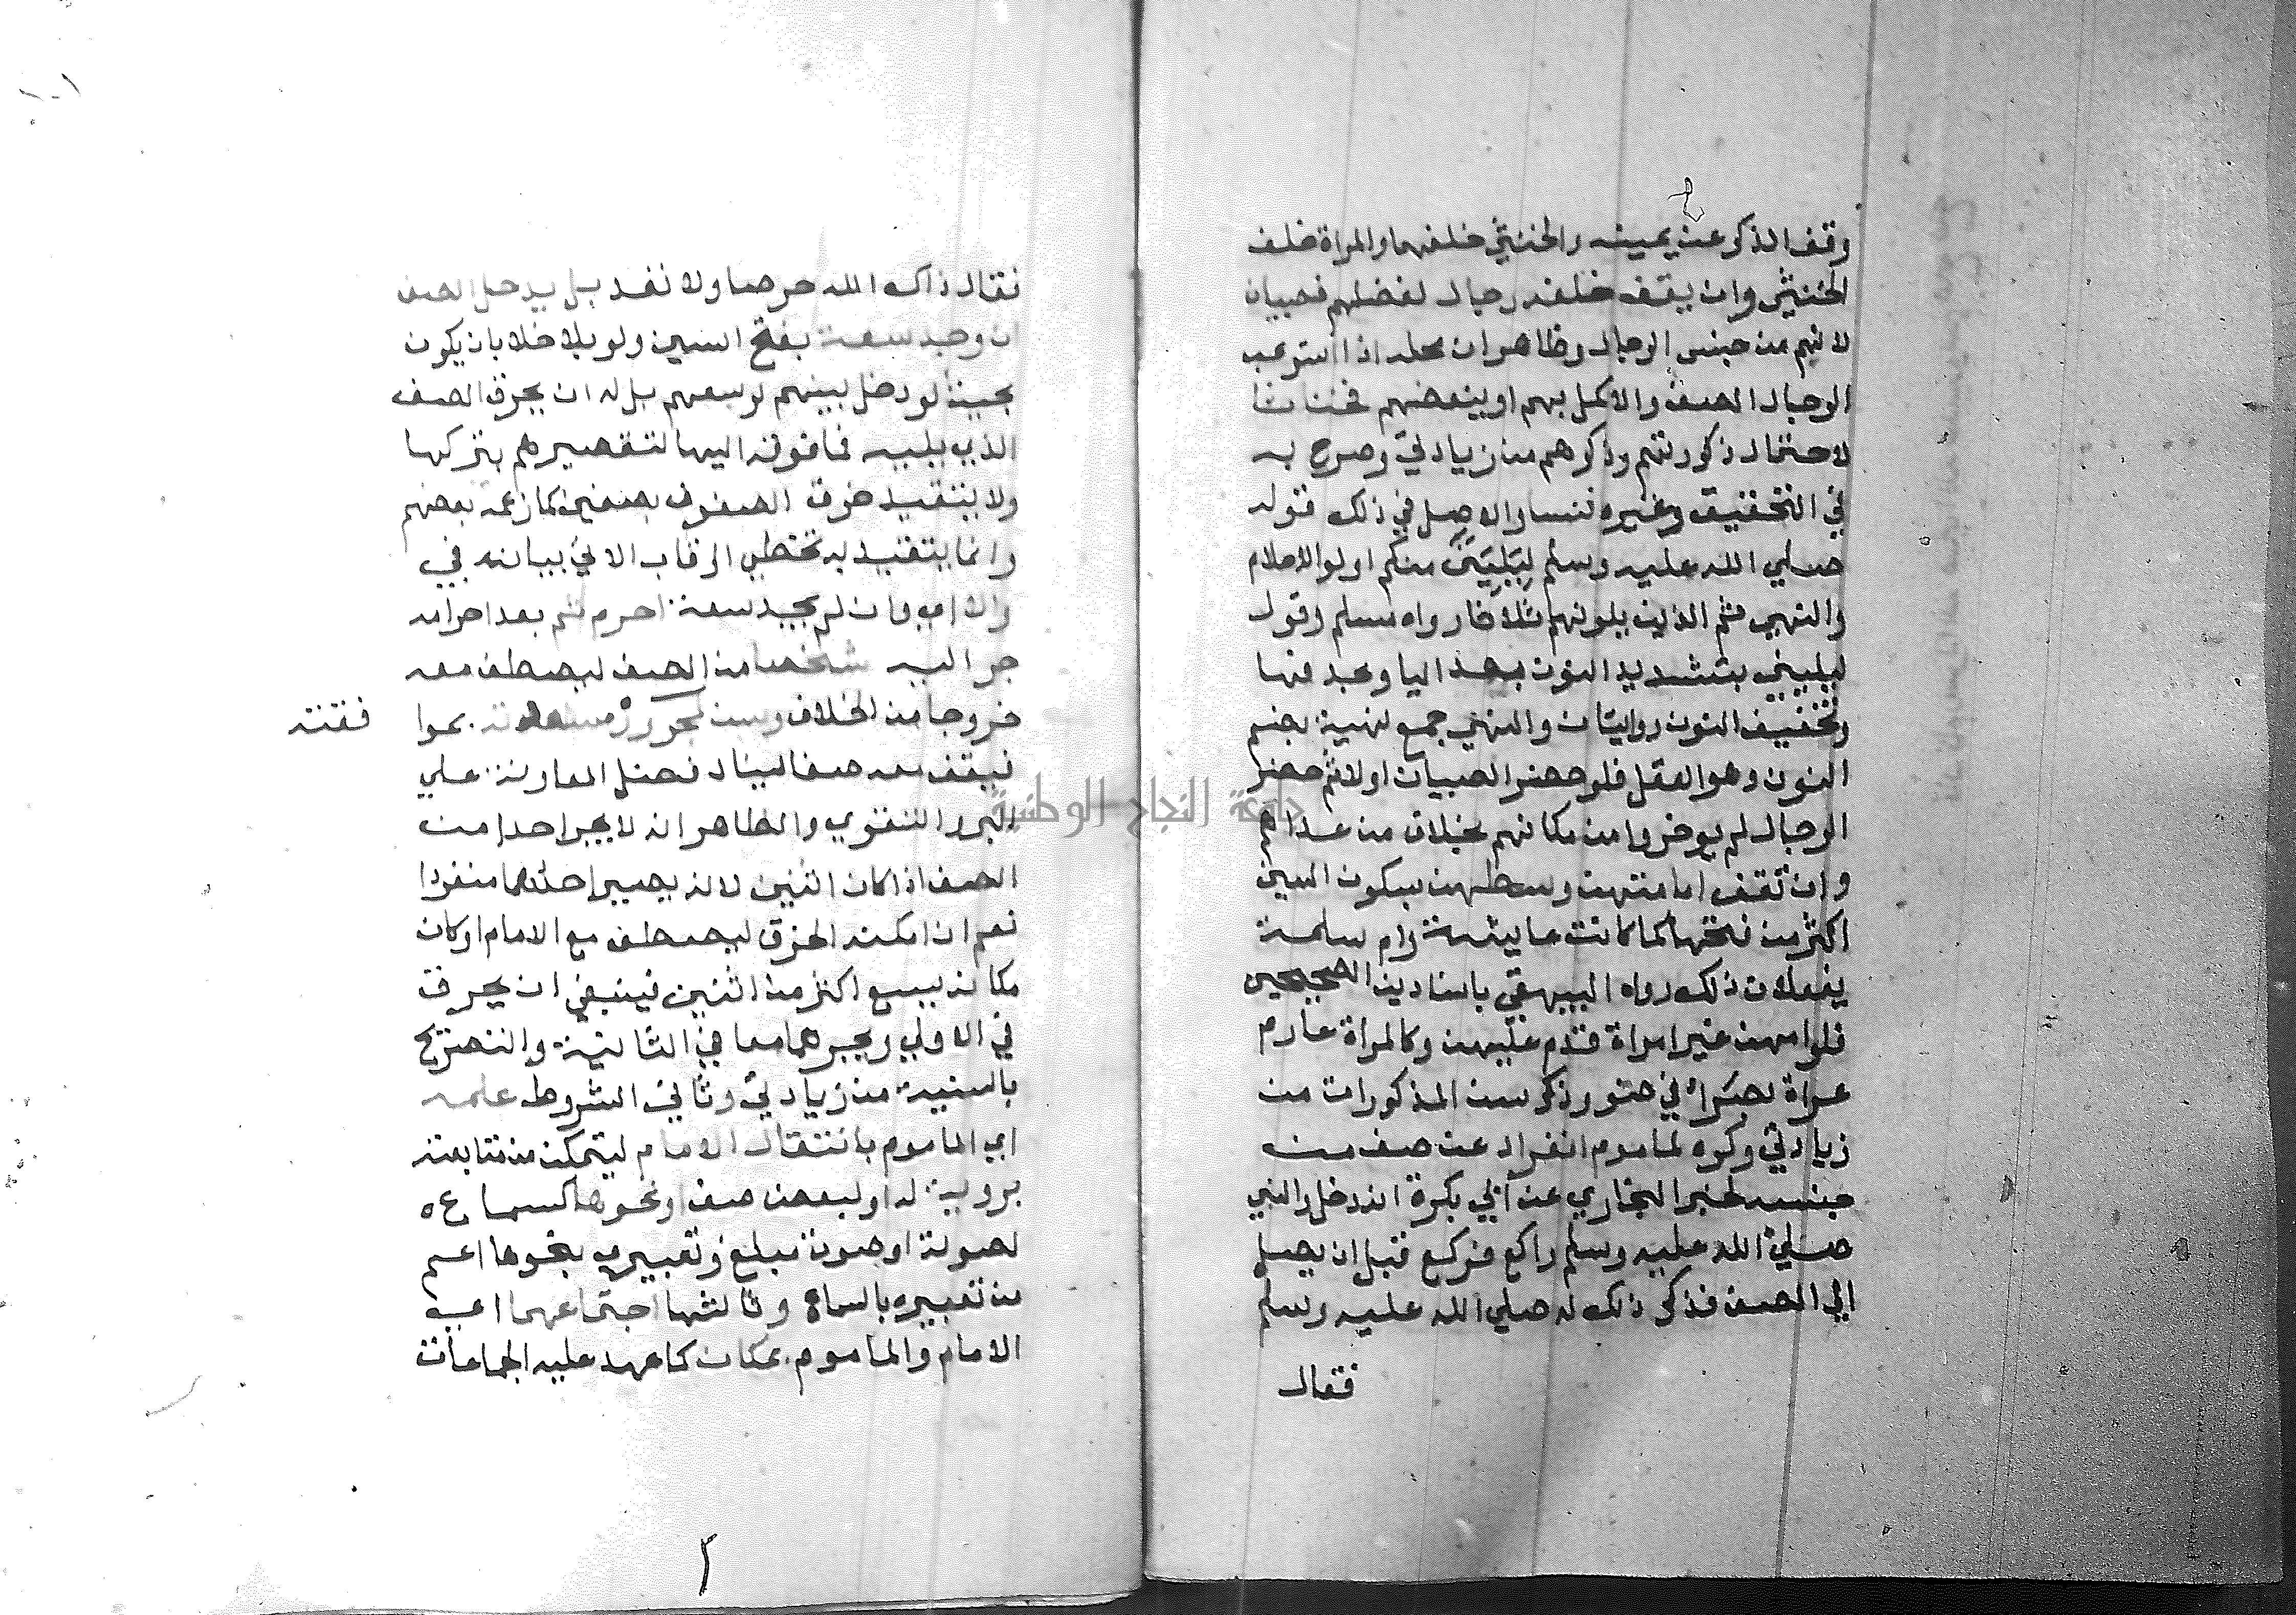 وقف الذكر عن يمينه والخنثي خلفهما والمراة خلف
الخنثي وان يقف خلفه رجال لفضلهم فصبيان
لانهم من جنس الرجال وظاهر ان محله اذا استوعب
الرجال الصف والا كمل بهم او ببعضهم فخناثا
لاحتمال ذكورتهم وذكرهم من زيادتي وصرح به
في التحقيق وغيره فنسا والاصل في ذلك قوله
صلي الله عليه وسلم لِيَلِيَنِّي منكم اولوا الاحلام
والنهي ثم الذين يلونهم ثلاثا رواه مسلم وقوله
ليليني بتشديد النون بعد اليا وبحذفها
وتخفيف النون روايتان والنهي جمع نهية بضم
النون وهو العقل فلو حضر الصبيان اولا ثم حضر
الرجال لم يوخروا من مكانهم بخلاف من عداهم
وان تقف امامتهن وسطهن بسكون السين
اكثر من فتحها كما كانت عايشة وام سلمة
يفعلان ذلك رواه البيهقي باسنادين الصحيحين
فلو امهن غير امراة قدم عليهن وكالمراة عار ام
عراة بصراء في ضوء وذكر سن المذكورات من
زيادتي وكره لماموم انفراد عن صف من
جنسه لخبر البخاري عن ابي بكرة انه دخل والنبي
صلي الله عليه وسلم راكع فركع قبل ان يصل
الي الصف فذكر ذلك له صلي الله عليه وسلم
فقال
١٠١
فقال زادك الله حرصا ولا تعد بل يدخل الصف
ان وجد سعة بفتح السين ولو بلا خلا بان يكون
بحيث لو دخل بينهم لوسعهم بل له ان يخرق الصف
الذي يليه فما فوقه اليها لتقصيرهم بتركها
ولا يتقيد خرق الصفوف بصفين كما زعمه بعضهم
وانما يتقيد به تخطي الرقاب الاتي بيانه في
فان لم يجد سعة احرم ثم بعد احرامه
جر اليه شخصا من الصف ليصطف معه
خروجا من الخلاف وسن لمجروره مساعدته بموا
فقته
فيقف معه صفا لينال فضل المعاونة علي
البر والتقوي والظاهر انه لا يجر احدا من
الصف اذا كان اثنين لانه يصير احدهما منفردا
نعم ان امكنه الخرق ليصطف مع الامام او كان
مكانه يسع اكثر من اثنين فينبغي ان يخرق
في الاولي ويجرهما معا في الثانية والتصريح
بالسنية من زيادتي وثاني الشروط علمه
اي الماموم بانتقال الامام ليتمكن من متابعته
بروية له او لبعض صف او نحوها كسماع
لصوته او صوت مبلغ وتعبيري بنحوها اعم
من تعبيره بالسماع وثالثها اجتماعهما اي
الامام والماموم بمكان كما عهد عليه الجماعات
جامعة النجاح الوطنية